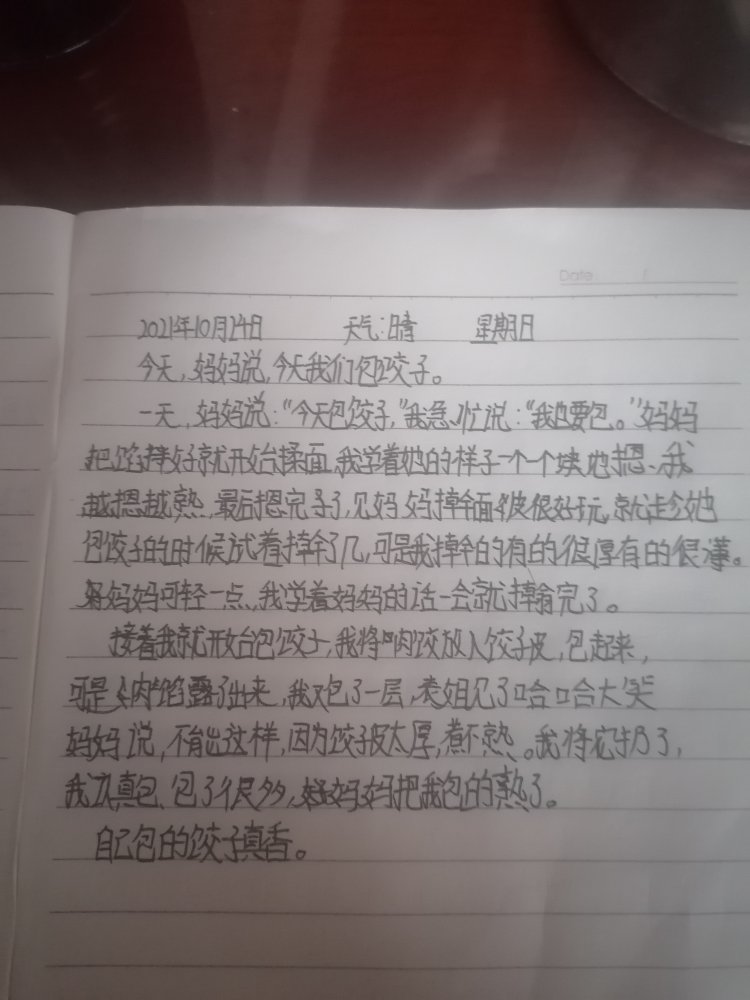 Date
2021年10月24日 天气:晴 星期日
今天,妈妈说,今天我们包饺子。
一天,妈妈说:“今天包饺子,”我急忙说:“我也要包。”妈妈
把馅拌好就开始揉面,我学着她的样子一个一个块地摁、我
越摁越熟,最后摁完了,见妈妈擀面皮很好玩,就趁她
包饺子的时候试着擀了几,可是我擀的有的很厚有的很薄。
妈妈可轻一点、我学着妈妈的话一会就擀完了。
接着我就开始包饺子,我将肉饺放入饺子皮,包起来,
可是肉馅露了出来,我又包了一层,表姐见了哈哈大笑
妈妈说,不能这样,因为饺子皮太厚,煮不熟。我将它扔了,
我认真包、包了很多,妈妈把我包的熟了。
自己包的饺子真香。